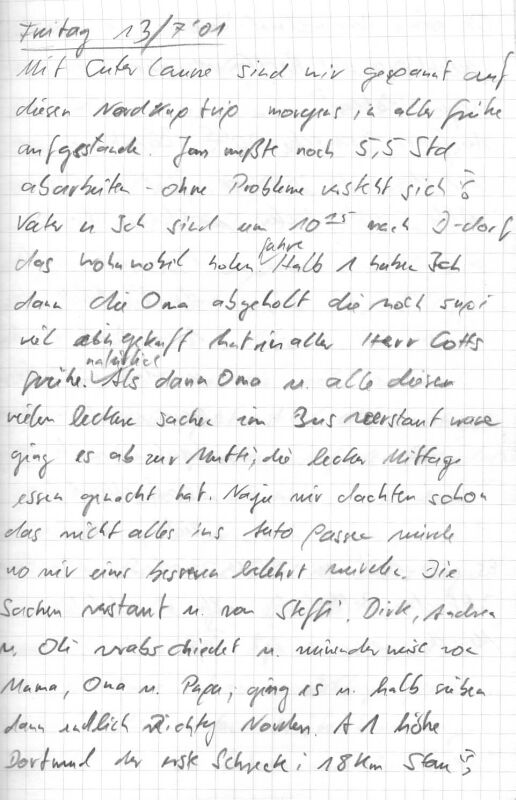 Freitag 13/7'01
Mit Guter Laune sind wir gespannt auf
diesen Nordkap trip morgens in aller frühe
aufgestande. Jan mußte noch 5,5 Std
abarbeiten - ohne Probleme vsteht sich
Vater u Ich sind um 10 15 nach D-dorf
das Wohnmobil holen fahre Halb 1 haben Ich
dann die Oma abgeholt die noch supi
viel eingekauft hat in aller Herr Gotts
frühe. natürlich Als dann Oma u. alle diesen
vielen leckere sachen im Bus verstaut ware
ging es ab zur Mutti, die lecker Mittags
essen gemacht hat. Naja wir dachten schon
das nicht alles ins Auto Passen würde
wo wir eines besseren belehrt wurden. Die
Sachen verstaut u. von Steffi, Dirk, Andrea
u. Oli verabschiedet u. von
Mama, Oma u. Papa, ging es u. halb sieben
dann endlich Richtg Norden. A1 höhe
Dortmund der erste Schreck: 18 Km Stau